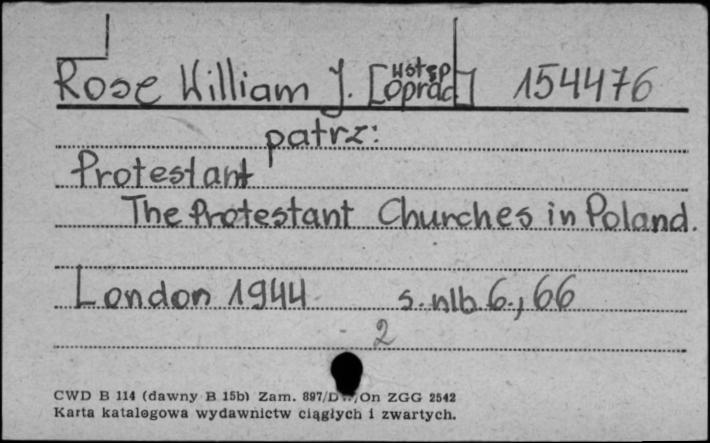 Rose William J. [wstęp oprac] 154476
patrz:
Protestant
The Protestant Churches in Poland.
London 1944 s. nlb. 6., 66
2
CWD B 114 (dawny B 15b) Zam. 897/ /On ZGG 2542
Karta katalogowa wydawnictw ciągłych i zwartych.